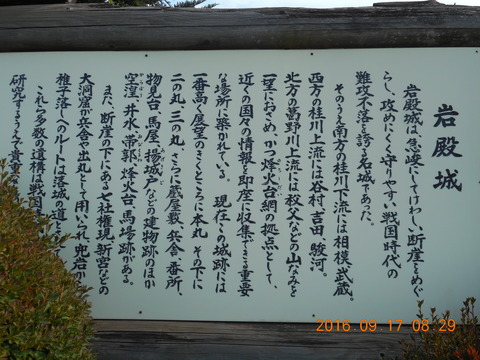 岩殿城
岩殿城は、急峻にしてけわしい断崖をめぐ
らし、攻めにくく守りやすい戦国時代の
難攻不落を誇る名城であった。
そのうえ南方の桂川下流には相模、武蔵。
西方の桂川上流には谷村、吉田、駿河。
北方の葛野川上流には秩父などの山なみを
一望におさめ、かつ烽火台網の拠点として、
近くの国々の情報を即座に収集できる重要
な場所に築かれている。現在この城跡には
一番高く展望のきくところに本丸、その下に
二の丸、三の丸、さらに蔵屋敷、兵舎、番所、
物見台、馬屋、揚城戸などの建物跡のほか
空湟、井水、帯郭、烽火台、馬場跡がある。
また、断崖の下にある七社権現、新宮などの
大洞窟が兵舎や出丸として用いられ、兜岩
稚子落しへのルートは落城の道と
これら多数の遺構は戦国
研究するうえで貴重な
2016.09.17 08:29